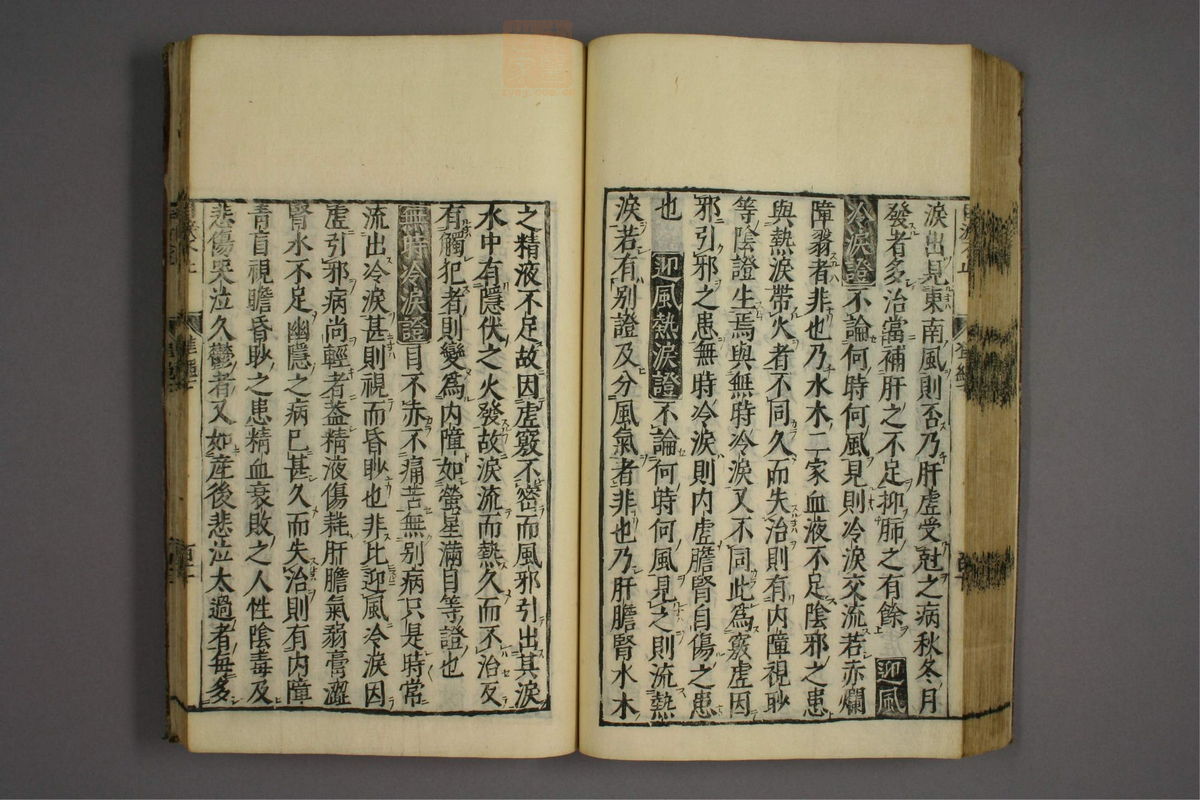 淚出見東南風則否乃肝虛受尅之病秋冬月
發者多治當補肝之不足抑肺之有餘迎風
冷淚證不論何時何風見則冷淚交流若赤爛
障翳者非也乃水木二家血液不足陰邪之患
與熱淚帶火者不同久而失治則有內障視眇
等陰證生焉與無時冷淚又不同此為竅虛因
邪引邪之患無時冷淚則內虛膽腎自傷之患
也迎風熱淚證不論何時何風見之則流熱
淚若有别證及分風氣者非也乃肝膽腎水木
之精液不足故因虛竅不密而風邪引出其淚
水中有隱伏之火發故淚流而熱久而不治反
有觸犯者則變爲內障如螢星滿目等證也
無時冷淚證目不赤不痛苦無别病只是時常
流出冷淚甚則視而昏眇也非比迎風冷淚因
虛引邪病尚輕者蓋精液傷耗肝膽氣弱膏澀
腎水不足幽隱之病已甚久而失治則有内障
青盲視瞻昏眇之患精血衰敗之人性陰毒及
悲傷哭泣久鬱者又如産後悲泣太過者每多